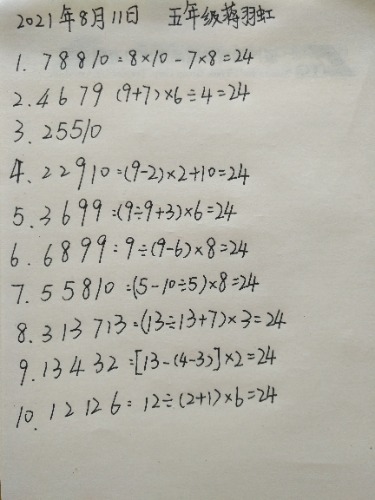 2021年8月11日 五年级蒋羽虹
1. 7 8 8 10 = 8×10-7×8=24
2. 4 6 7 9 (9+7)×6÷4=24
3. 2 5 5 10
4. 2 2 9 10 =(9-2)×2+10=24
5. 3 6 9 9 =(9÷9+3)×6=24
6. 6 8 9 9 = 9÷(9-6)×8=24
7. 5 5 8 10 =(5-10÷5)×8=24
8. 3 13 7 13 =(13÷13+7)×3=24
9. 13 4 3 2 =[13-(4-3)]×2=24
10. 1 2 12 6 = 12÷(2+1)×6=24